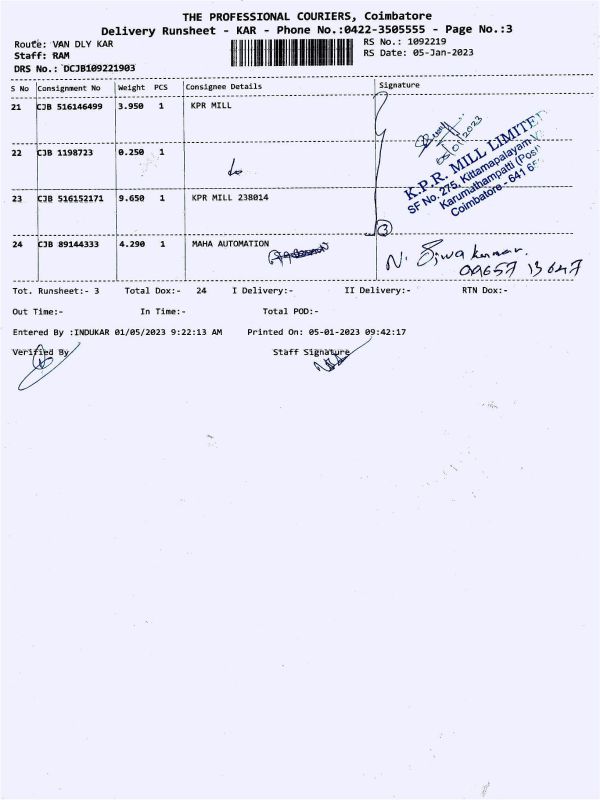 THE PROFESSIONAL COURIERS, Coimbatore
Delivery Runsheet - KAR - Phone No.:0422-3505555 - Page No.:3
Route: VAN DLY KAR
RS No.: 1092219
Staff: RAM
RS Date: 05-Jan-2023
DRS No.: DCJB109221903
S No Consignment No Weight PCS Consignee Details Signature
21 CJB 516146499 3.950 1 KPR MILL
05/01/2023
K.P.R. MILL LIMITED
SF No. 275, Kittampalayam
Karumathampatti (Post
Coimbatore - 641 65
22 CJB 1198723 0.250 1
23 CJB 516152171 9.650 1 KPR MILL 238014
3
24 CJB 89144333 4.290 1 MAHA AUTOMATION
N. Siva kumar
09657 13647
Tot. Runsheet:- 3 Total Dox:- 24 I Delivery:- II Delivery:- RTN Dox:-
Out Time:- In Time:- Total POD:-
Entered By :INDUKAR 01/05/2023 9:22:13 AM Printed On: 05-01-2023 09:42:17
Verified By Staff Signature